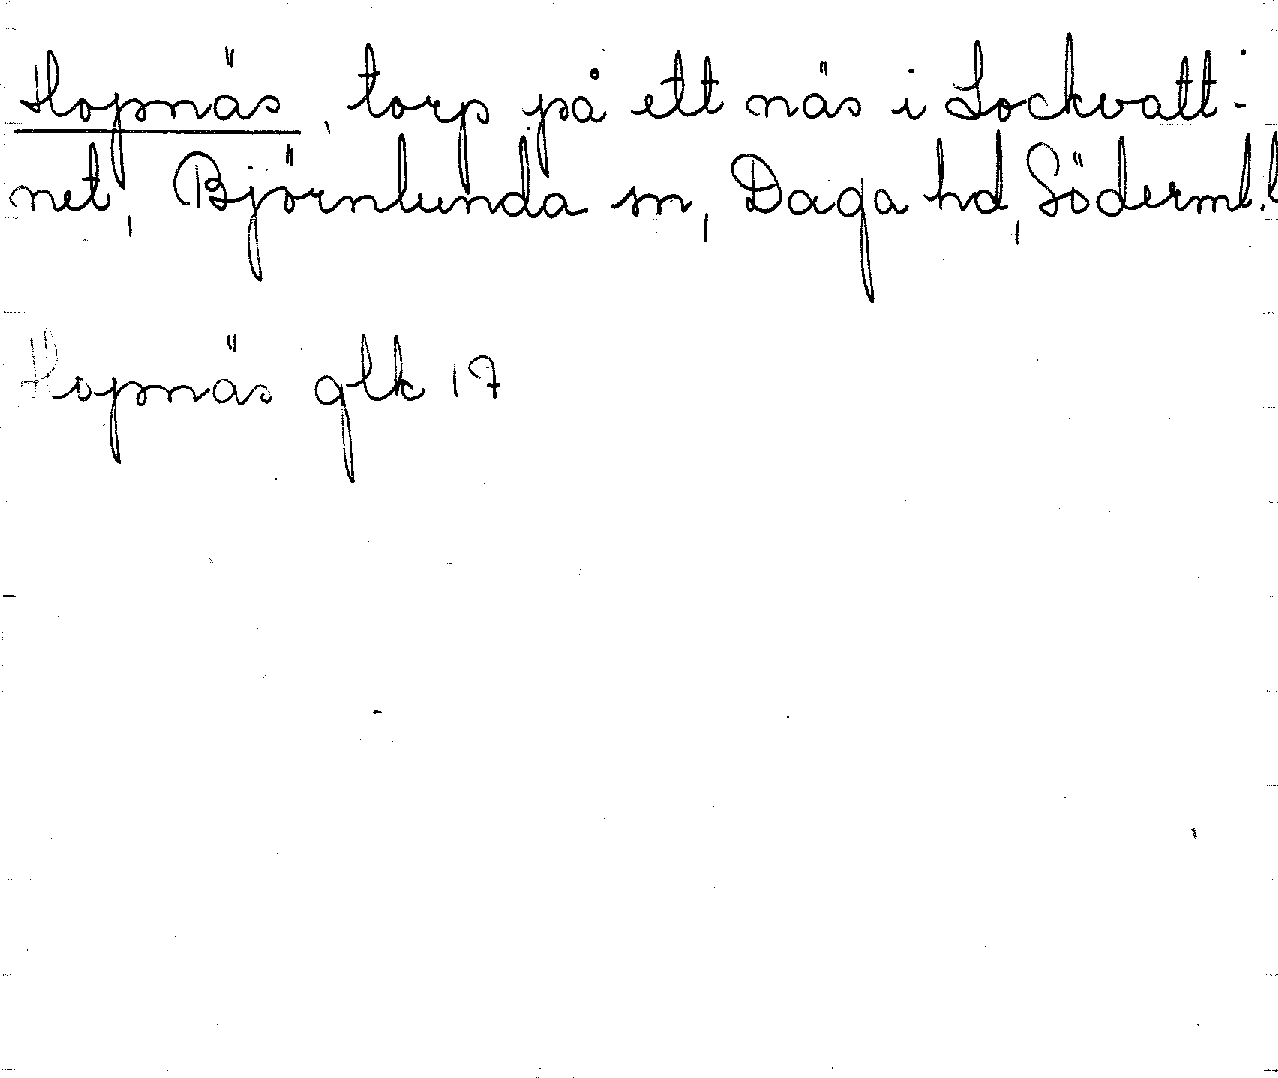 Hopnäs, torp på ett näs i Lockvatt-
net, Björnlunda sn, Daga hd, Söderml.l
Hopnäs glk 17